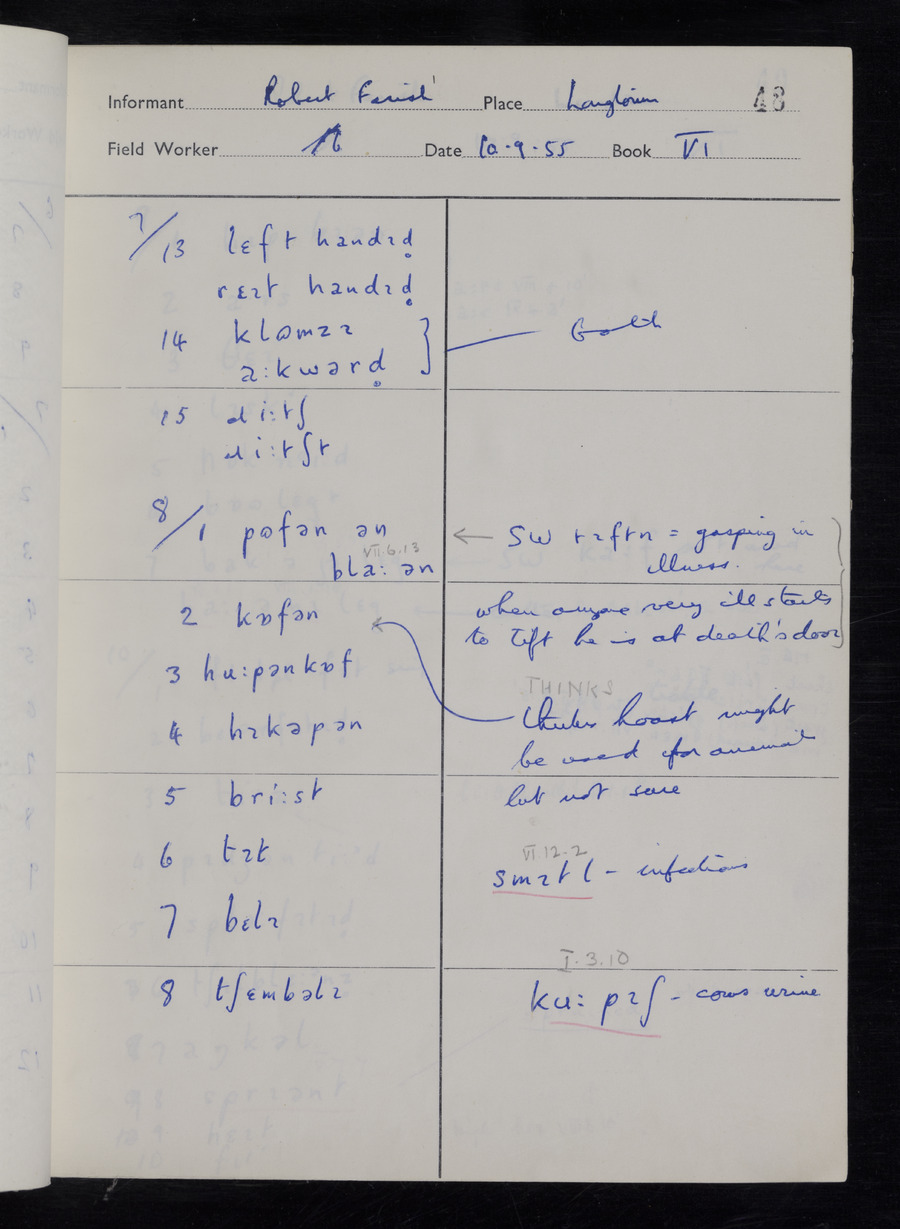 Informant Robert Place Longtown 48
Field Worker Date 10.9.55 Book VI
7/13 lɛft handɪd̥
rɛɪt handɪd̥
14 klɒmzɪ
a:kwərd̥
15
8/1 pɒfən ən
VII.6.13
bla:ən
← SW tɪftn = gasping in
illness.
when anyone very ill starts
to tift he is at death's door
2 kɒfən
3 hu:pənkɒf
4 hɪkəpən
THINKS
thinks hoast might
be used for animal
but not sure
5 bri:st
6 tɪt
VI 12.2
smɪtl - infectious
7 bɛlɪ
I.3.10
8 tʃɛmbəlɪ
ku: pɪʃ - cows urine